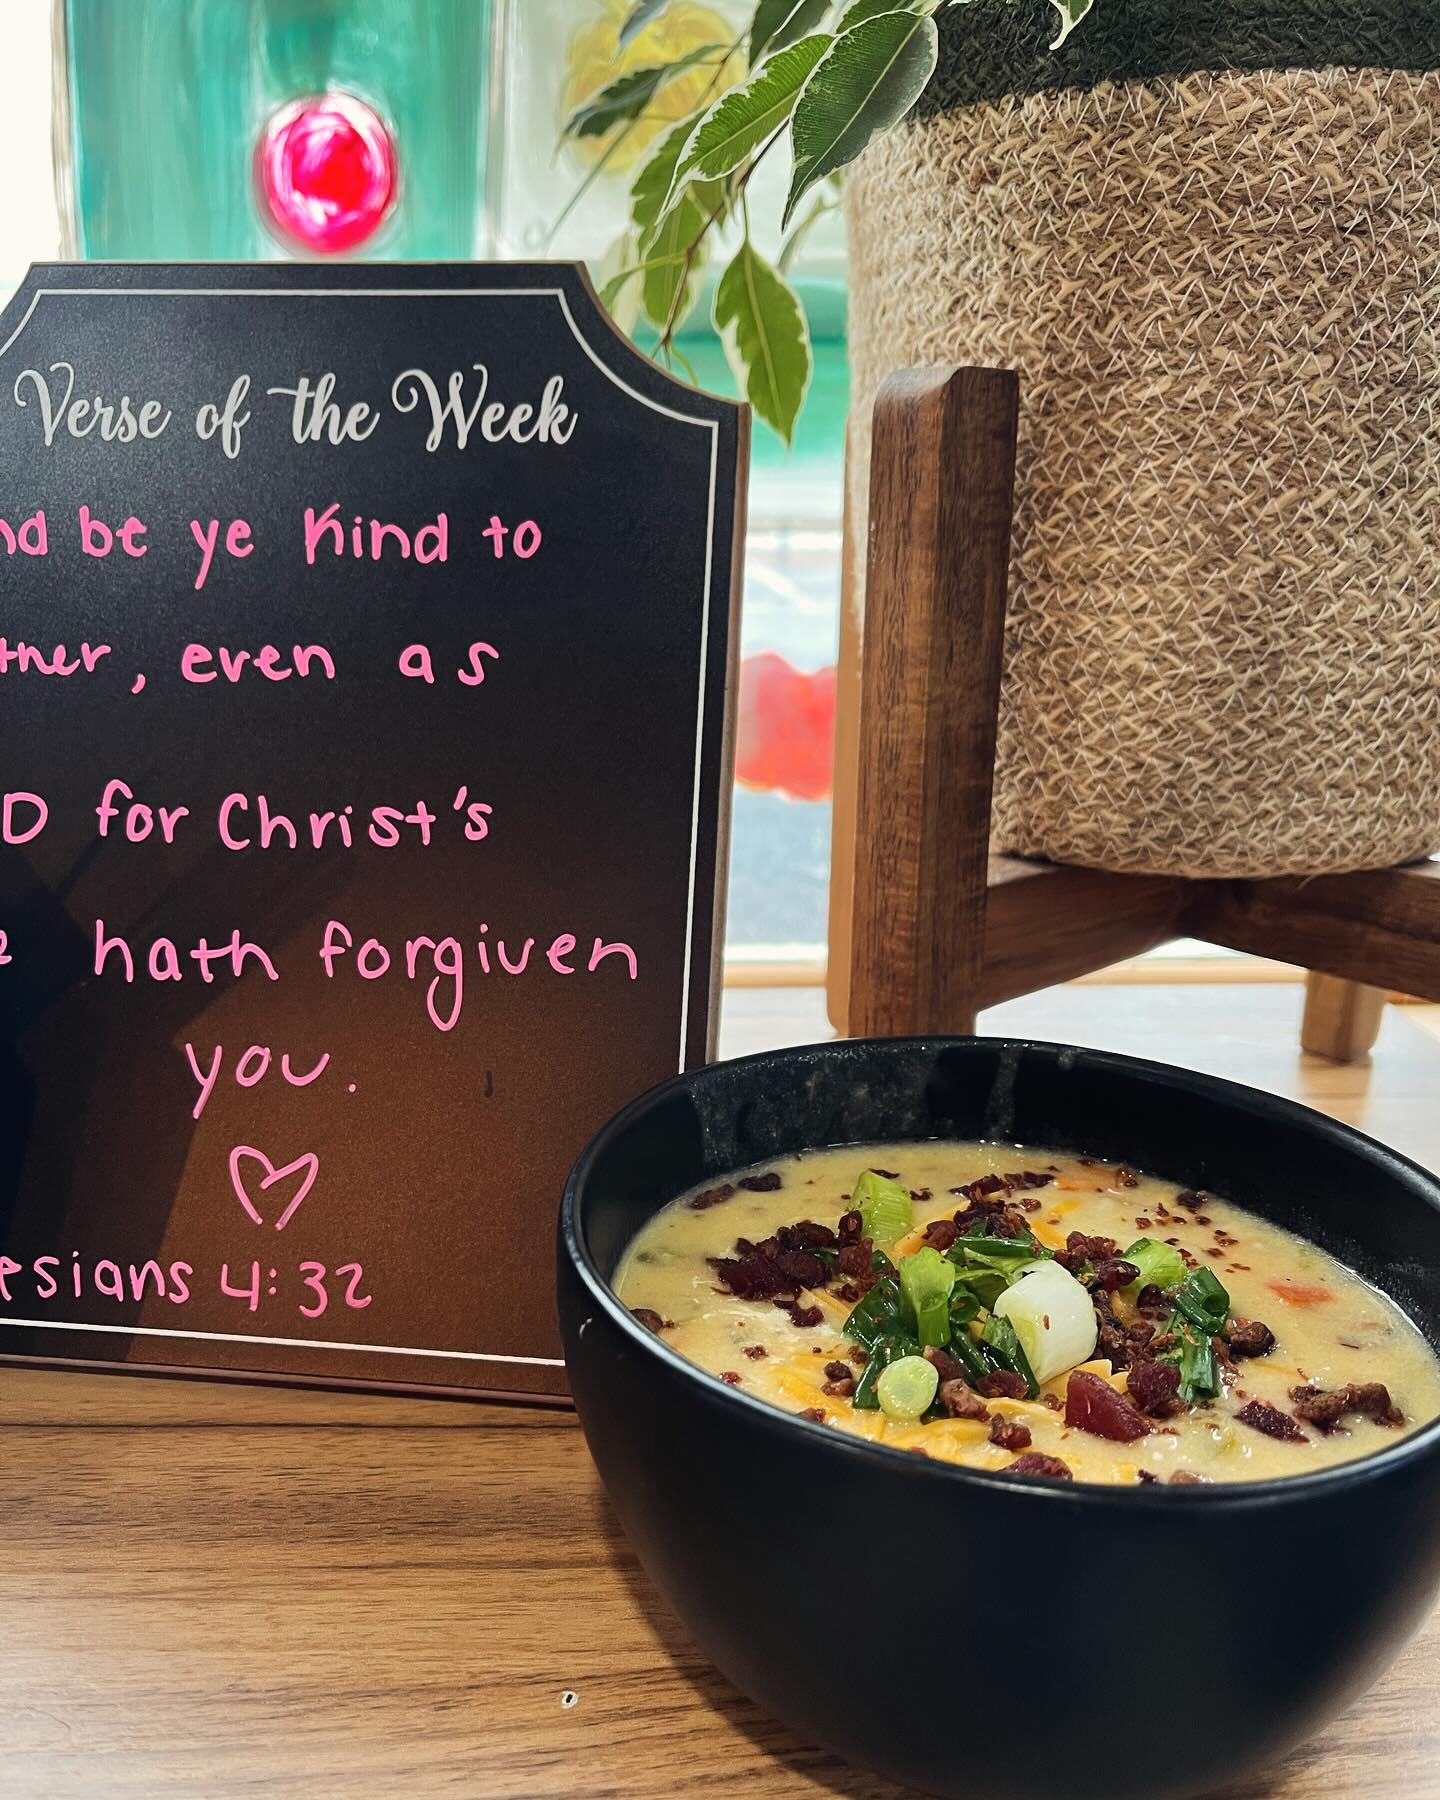 Verse of the Week
be ye kind to
, even as
for Christ's
hath forgiven
you.
4:32